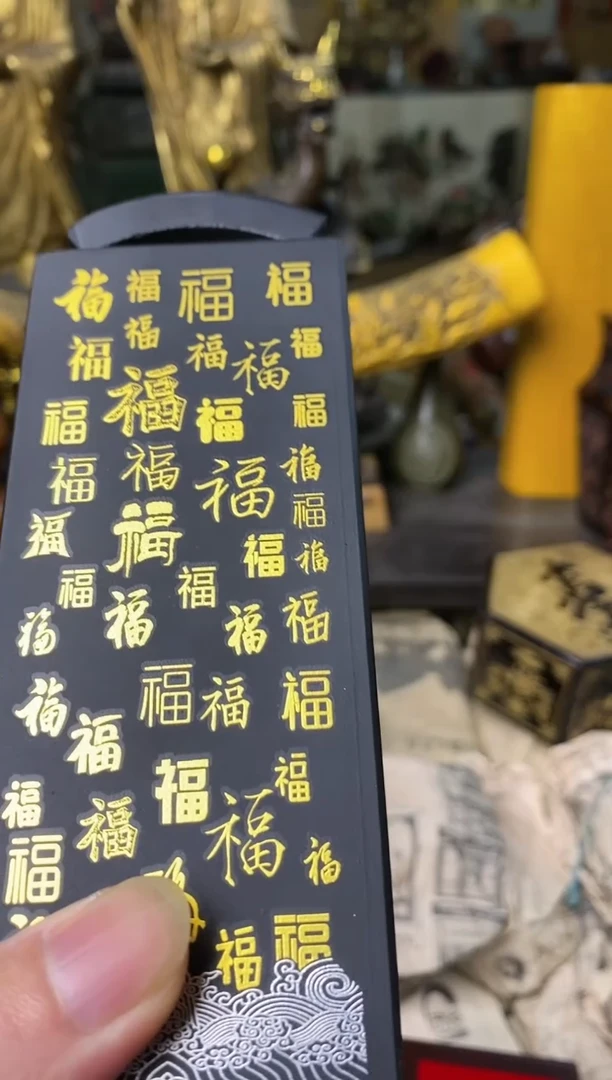 福 福 福 福
福 福 福 福 福
福 福 福 福
福 福 福 福
福 福 福 福 福
福 福 福 福 福
福 福 福 福
福 福 福 福
福 福 福 福
福
福 福